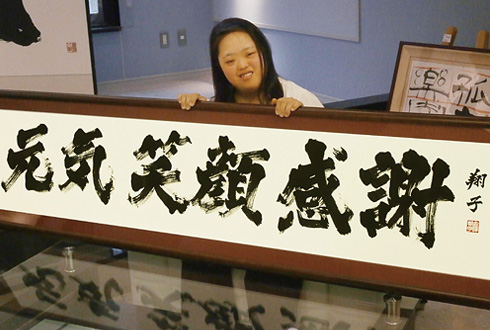 元気 笑顔 感謝
翔子